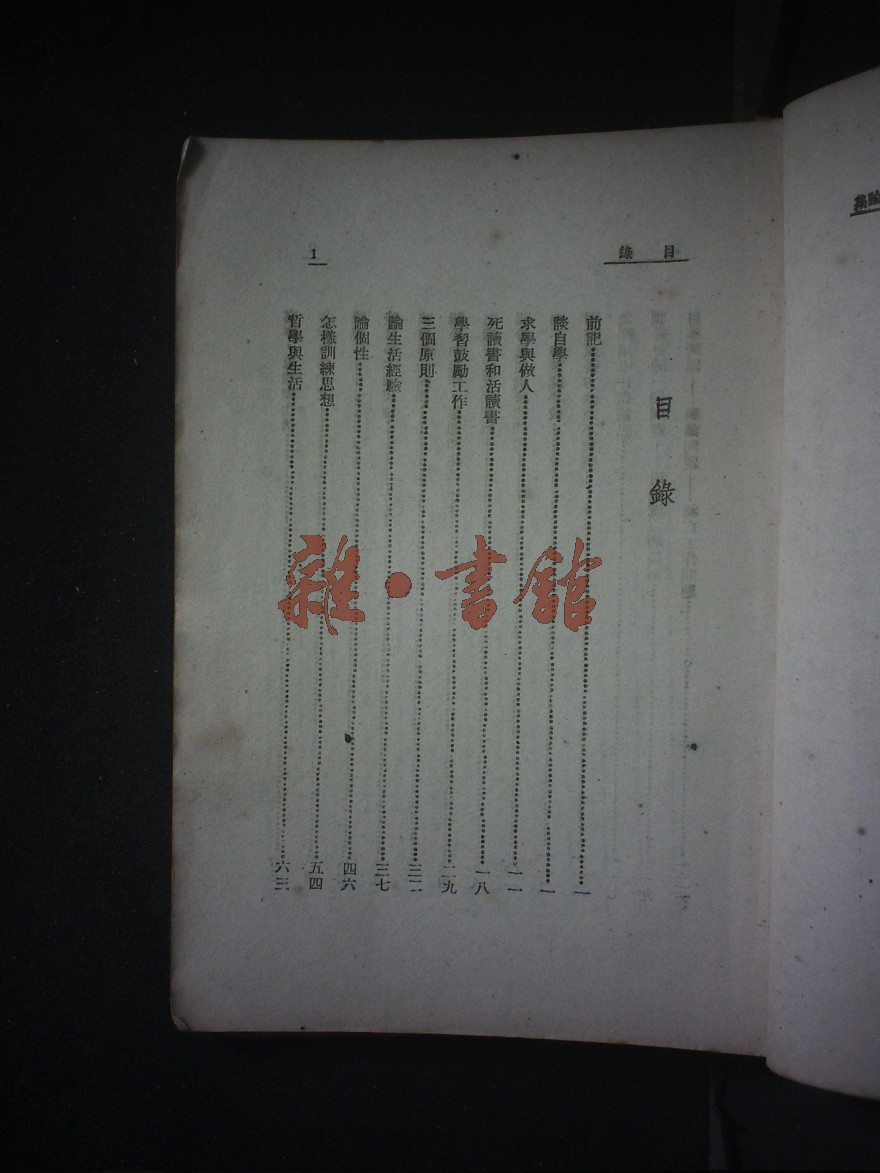 目錄
1
目錄
前記 一
談自學 一
求學與做人 一一
死讀書和活讀書 一八
學習鼓勵工作 二九
三個原則 三二
論生活經驗 三七
論個性 四六
怎樣訓練思想 五四
哲學與生活 六三
雜·書館